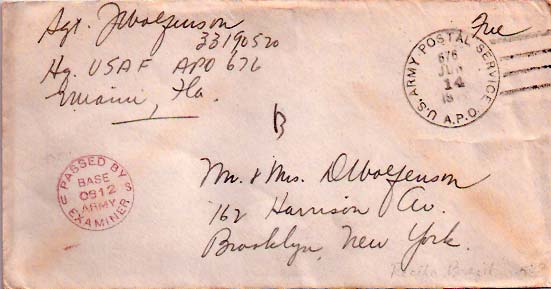 Sgt. J Wolfenson
33190520
Hq. USAF APO 676
Miami, Fla.
Free
U.S. ARMY POSTAL SERVICE
A.P.O.
676
JUN
14
B
PASSED BY
U S
BASE
0912
ARMY
EXAMINER
Mr. & Mrs. D Wolfenson
162 Harrison Av.
Brooklyn, New York.
Recife Brazil